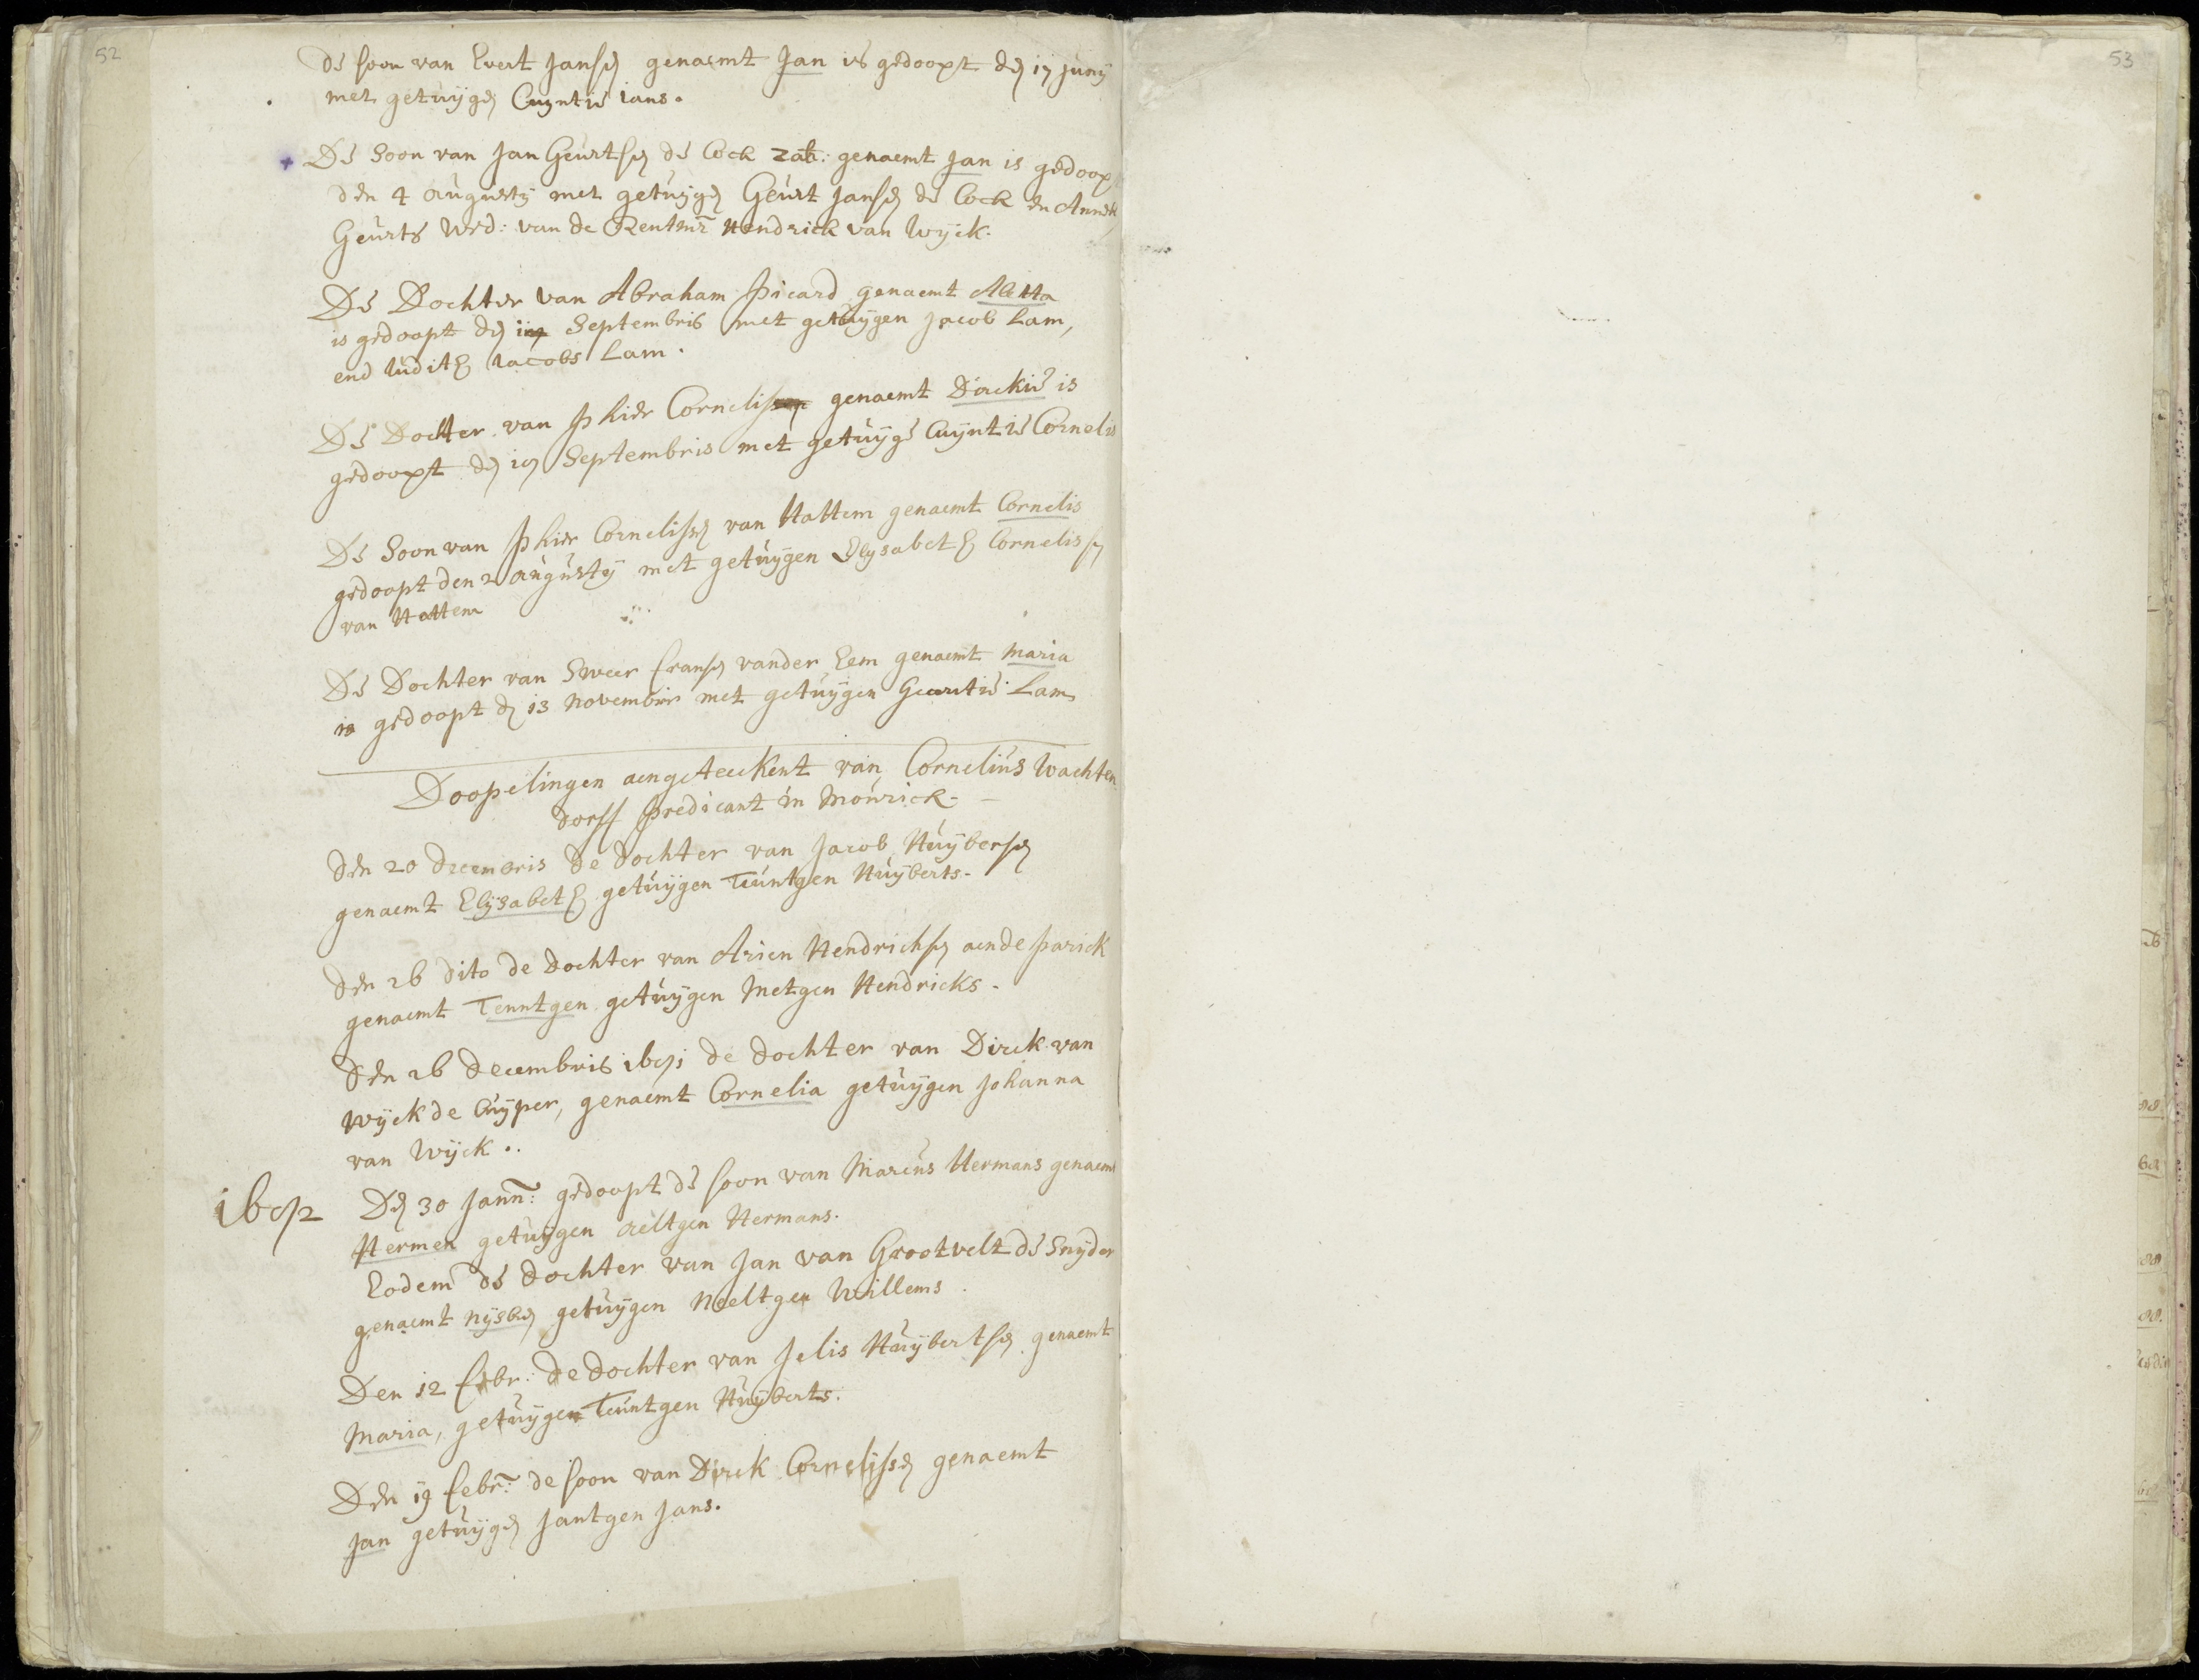 52
de soon van Evert Jansen genaemt Jan is gedoopt den 17 junij
met getuijgen Cuyntie ians.
De Soon van Jan Geurtsen de Cock zal: genaemt Jan is gedoopt
den 4 augustij met getuijgen Geurt Jansen de Cock en Annek
Geurts wed: van de Rentmr Hendrick van Wijck.
De Dochter van Abraham Picard genaemt Aletta
is gedoopt den Septembris met getuijgen Jacob Lam,
end Judith Jacobs Lam.
De Dochter van Phier Cornelissen genaemt Dirckie is
gedoopt den 17 Septembris met getuijge Cuijntie Cornelis
De Soon van Phier Cornelissen van Hattem genaemt Cornelis
gedoopt den 2 augustij met getuijgen Elysabeth Cornelissen
van Hattem
De Dochter van Sweer fransen vander Eem genaemt Maria
is gedoopt den 13 novembris met getuijgen Geurtie Lam
Doopelingen aengeteeckent van Cornelius Wachten
dorff Predicant in Mourick
Den 20 decembris de dochter van Jacob Huijbersen
genaemt Elijsabeth getuijgen Teuntgen Huijberts.
Den 26 dito de dochter van Arien Hendricksen aende parick
genaemt Teuntgen getuijgen Metgen Hendricks.
Den 26 decembris 1671 de dochter van Dirck van
wijck de Cuijper, genaemt Cornelia getuijgen Johanna
van Wijck ..
1672 Den 30 Jann: gedoopt de soon van Marcus Hermans genaemt
Hermen getuijgen aeltgen Hermans.
Eodem de dochter van Jan van Grootvelt de Snijder
genaemt nijsken getuijgen Neeltgen Willems.
Den 12 febr: de dochter van Jelis Huijbertsen genaemt
Maria, getuijgen Teuntgen Huijberts.
Den 19 febr: de soon van Dirck Cornelijssen genaemt
Jan getuijgen Jantgen Jans.
53